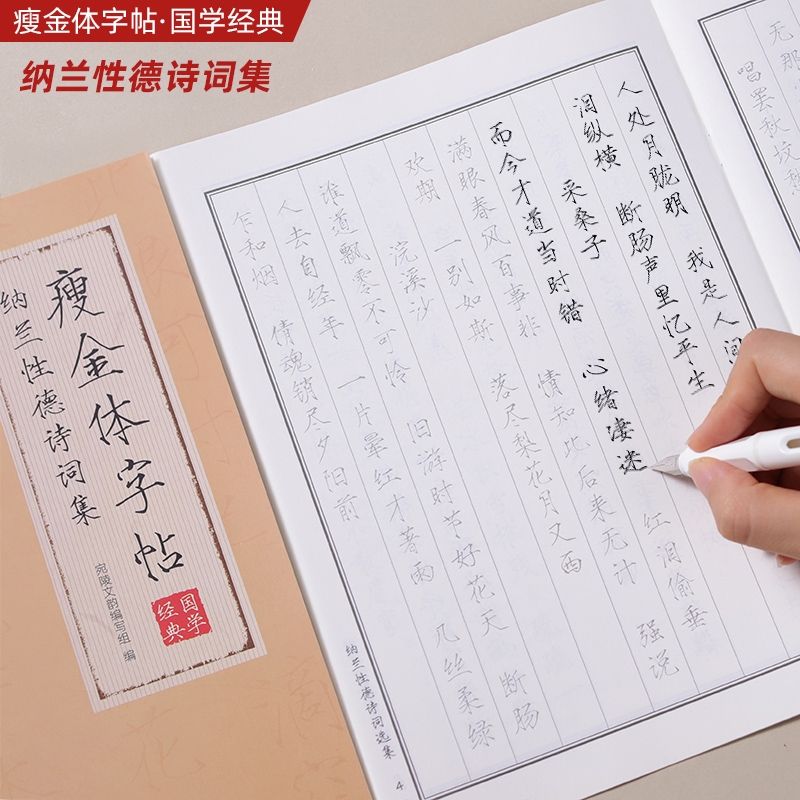 瘦金体字帖·国学经典
纳兰性德诗词集
无那
唱罢秋坟
人处月胧明 我是人间
泪纵横 断肠声里忆平生
采桑子
而今才道当时错 心绪凄迷 红泪偷垂
满眼春风百事非 情知此后来无计 强说
欢期 一别如斯 落尽梨花月又西
浣溪沙
谁道飘零不可怜 旧游时节好花天 断肠
人去自经年 一片晕红才著雨 几丝柔绿
乍和烟 倩魂销尽夕阳前
纳兰性德诗词选集
4
瘦金体字帖
纳兰性德诗词集
宛陵文韵编写组 编
国学
经典